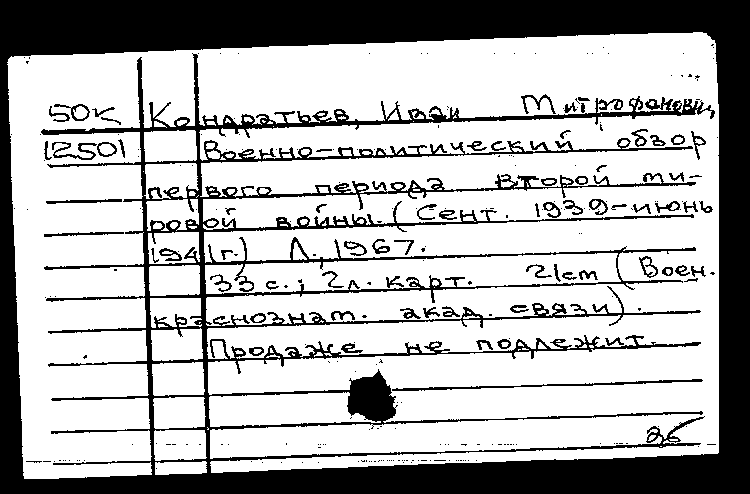 50К Кондратьев, Иван Митрофанович,
12501 Военно-политический обзор
первого периода второй ми-
ровой войны. (Сент. 1939-июнь
1941г.) Л., 1967.
33 с.; 2л. карт. 21см (Воен.
краснознам. акад. связи).
Продаже не подлежит.